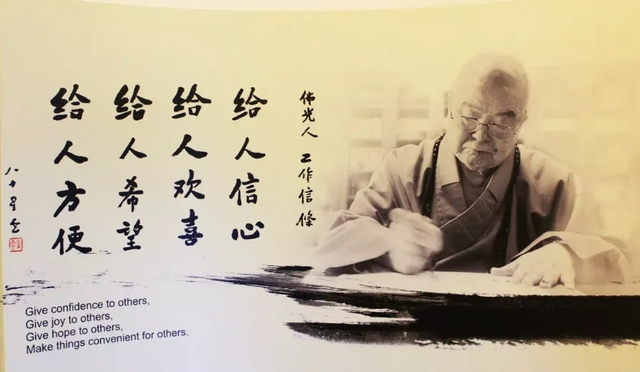 佛光人 工作信條
给人信心
给人欢喜
给人希望
给人方便
八十星云
Give confidence to others,
Give joy to others,
Give hope to others,
Make things convenient for others.